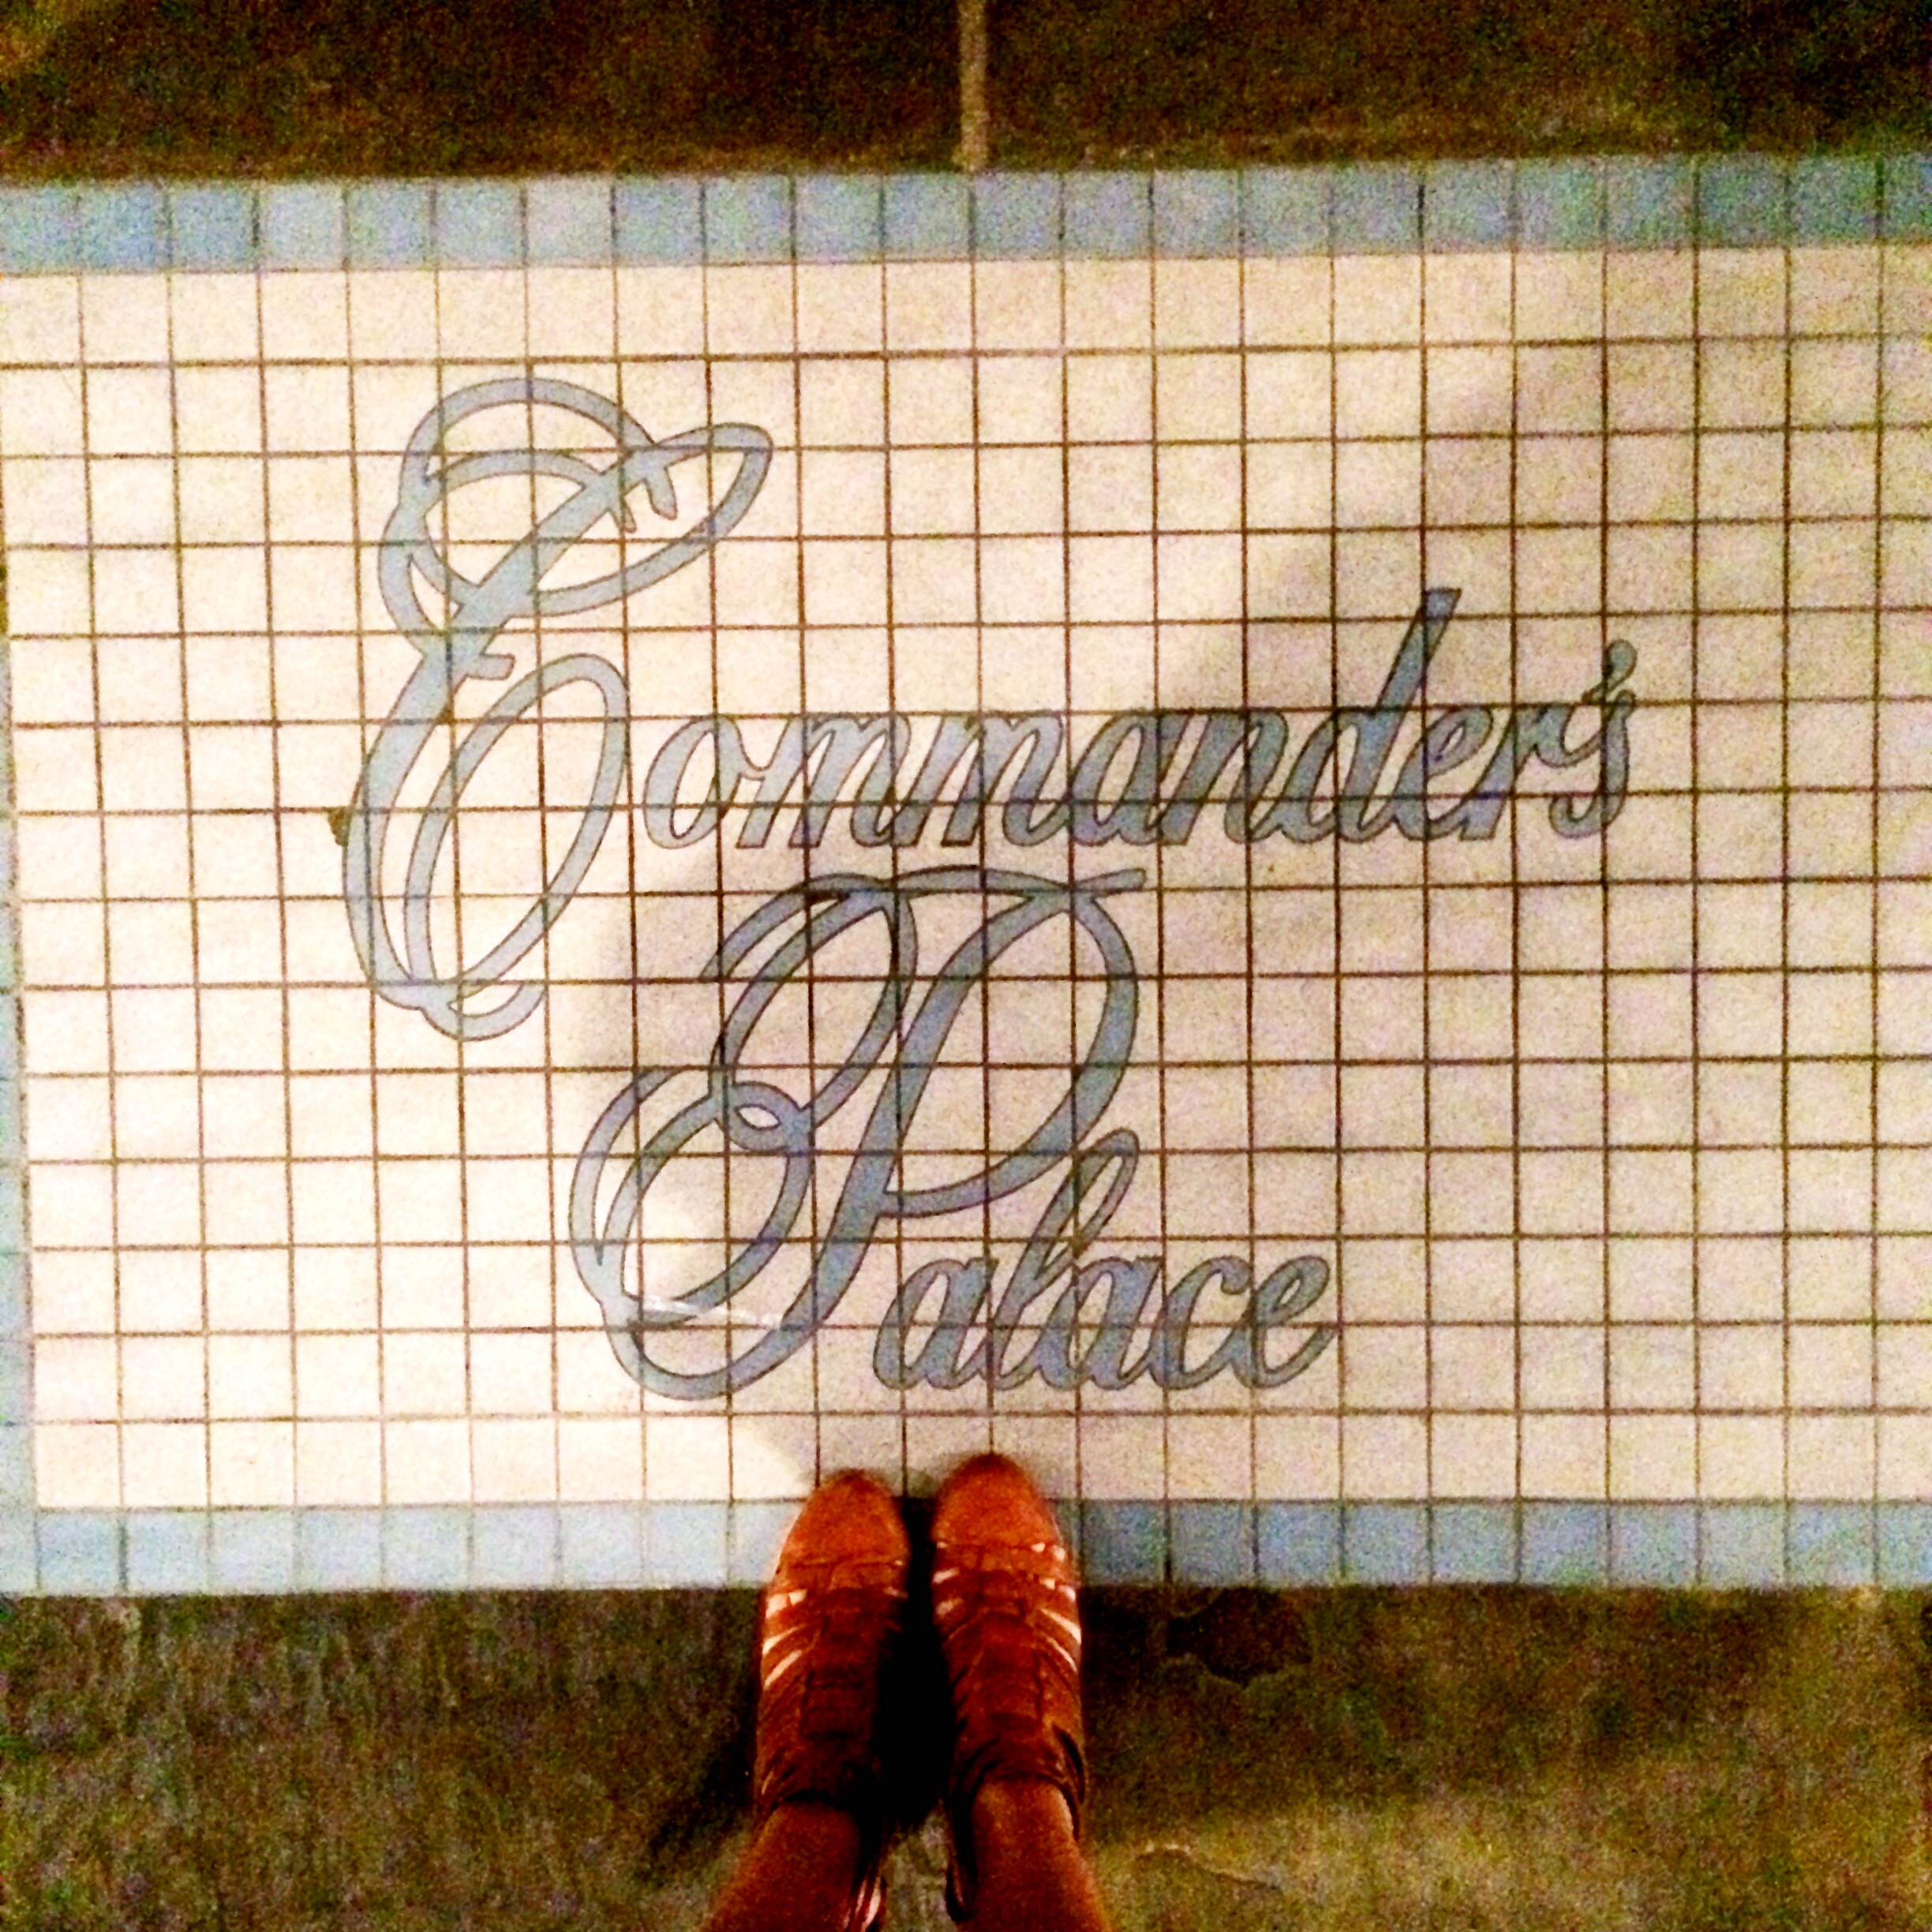 Commander's
Palace